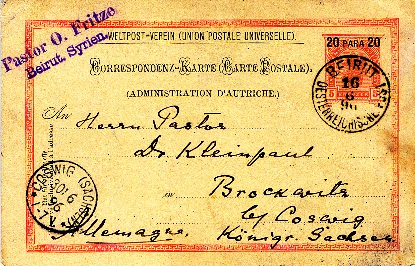 Pastor O. Fritze
Beirut, Syrien.
WELTPOST-VEREIN (UNION POSTALE UNIVERSELLE)
20 PARA 20
CORRESPONDENZ-KARTE (CARTE POSTALE).
(ADMINISTRATION D'AUTRICHE.)
BEIRUT
16
96
OESTERREICHISCHE
An Herrn Pastor
Dr. Kleinpaul
in Brockwitz
b/ Coswig
Allemagne. Königr. Sachsen
COSWIG (SACHSEN)